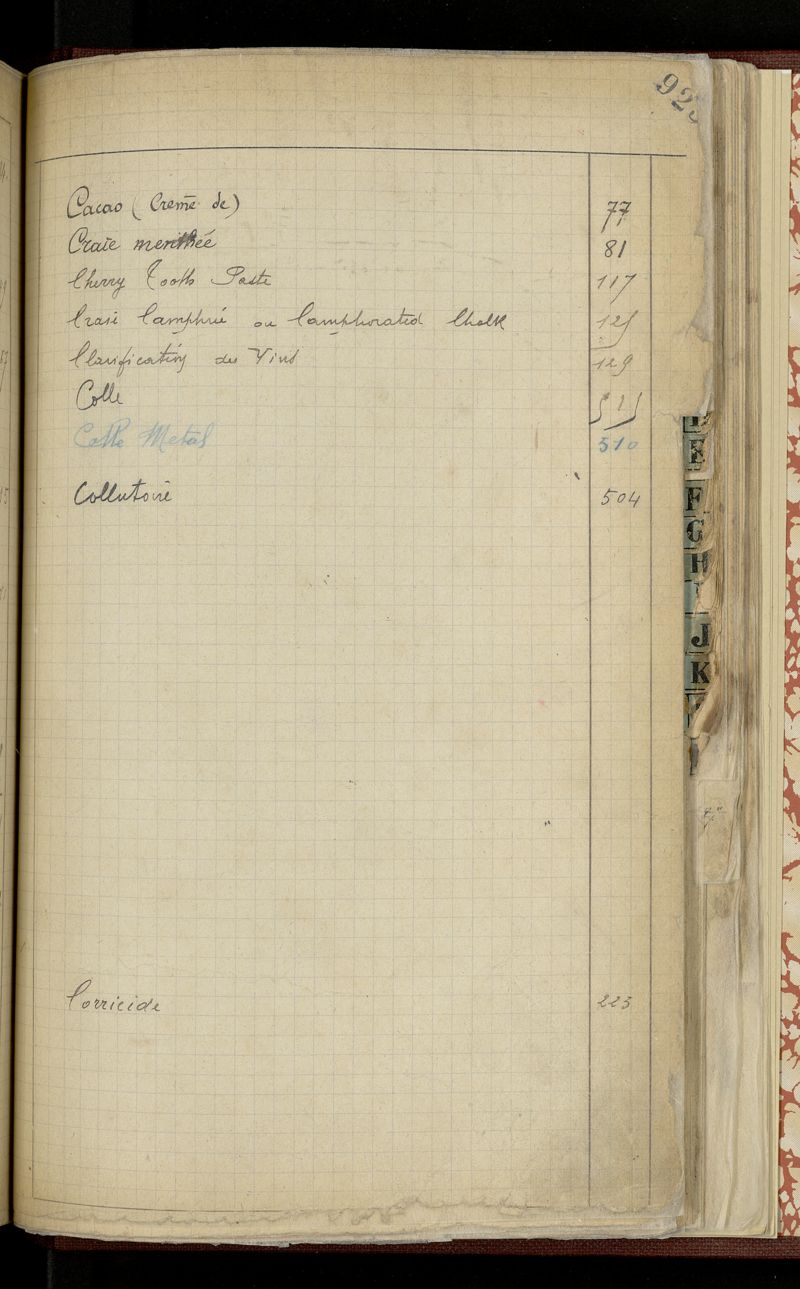 92
Cacao (Creme de) 77
Craie menthée 81
Cherry Tooth Paste 117
Craie Camphrée ou Camphorated Chalk 125
Clarification des Vins 129
Colle 515
Colle Metal 510
Collutoire 504
Corricide 223
E
F
G
H
I
J
K